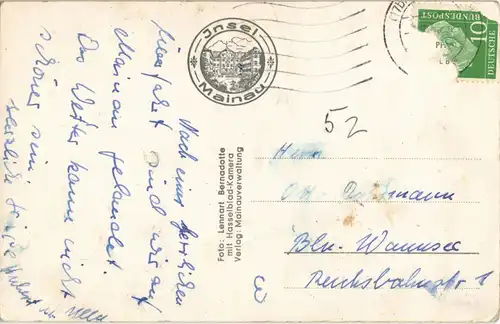 Nach einer herrlichen
Überfahrt sind wir auf
Mainau gelandet.
Das Wetter kann nicht
schöner sein.
Herzliche Grüße
Insel
Mainau
Foto: Lennart Bernadotte
mit Hasselblad-Kamera
Verlag: Mainauverwaltung
DEUTSCHE
BUNDESPOST
10
52
Herrn
Bln.-Wannsee
Reichsbahnstr. 1